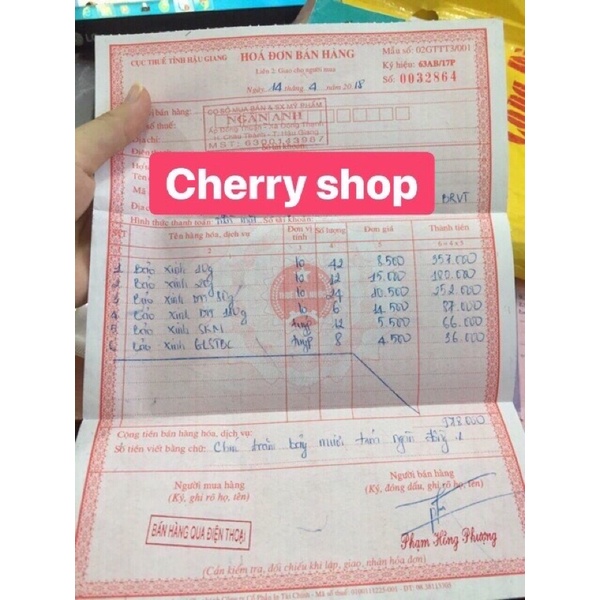 CỤC THUẾ TỈNH HẬU GIANG
HOÁ ĐƠN BÁN HÀNG
Mẫu số: 02GTTT3/001
Liên 2: Giao cho người mua
Ký hiệu: 63AB/17P
Ngày 14 tháng 4 năm 2018
Số: 0032864
bán hàng:
CƠ SỞ MUA BÁN & SX MỸ PHẨM
NGÂN ANH
số thuế:
MST: 6300143987
Cherry shop
BRVT
Hình thức thanh toán: Số tài khoản:
STT Tên hàng hóa, dịch vụ Đơn vị tính Số lượng Đơn giá Thành tiền
1 Bảo xinh 10g lo 42 8.500 357.000
2 Bảo xinh lo 12 15.000 180.000
3 Bảo xinh lo 24 10.500 252.000
4 Bảo xinh lo 6 14.500 87.000
5 Bảo xinh SKM tuyp 12 5.500 66.000
6 Bảo xinh tuyp 8 4.500 36.000
Cộng tiền bán hàng hóa, dịch vụ: 978.000
Số tiền viết bằng chữ: Chín trăm bảy mươi tám ngàn đồng
Người mua hàng
(Ký, ghi rõ họ, tên)
Người bán hàng
(Ký, đóng dấu, ghi rõ họ, tên)
BÁN HÀNG QUA ĐIỆN THOẠI
Phạm Hồng Phượng
(Cần kiểm tra, đối chiếu khi lập, giao, nhận hóa đơn)